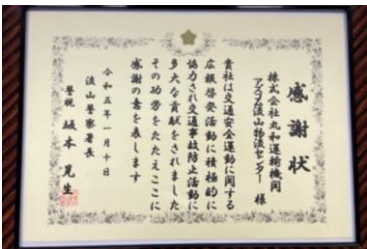 感謝状
株式会社丸和運輸機関
アズコム流山物流センター 様
貴社は交通安全運動に関する
広報啓発活動に積極的に
協力され交通事故防止活動に
多大な貢献をされました
その功労をたたえここに
感謝の意を表します
令和五年一月十日
流山警察署長
警視 坂本 晃生